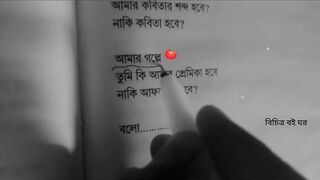 আমার কবিতার শব্দ হবে?
নাকি কবিতা হবে?
আমার গল্পে
তুমি কি প্রেমিকা হবে
নাকি বে?
বলো............
বিচিত্র বই ঘর